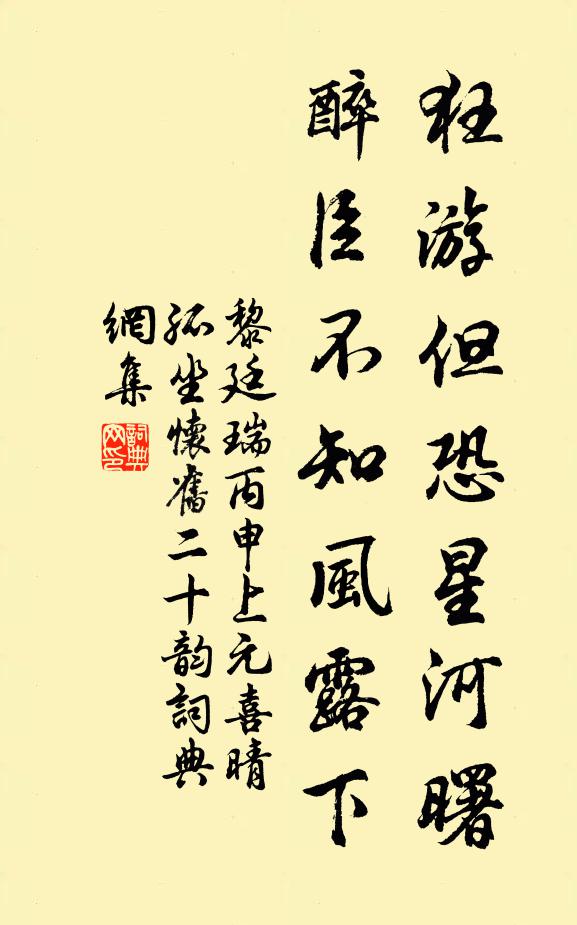 狂游但恐星河曙
醉臣不知風露下
黎廷瑞丙申上元喜晴
孤坐懷舊二十韵詞典
網集
詞典
网印